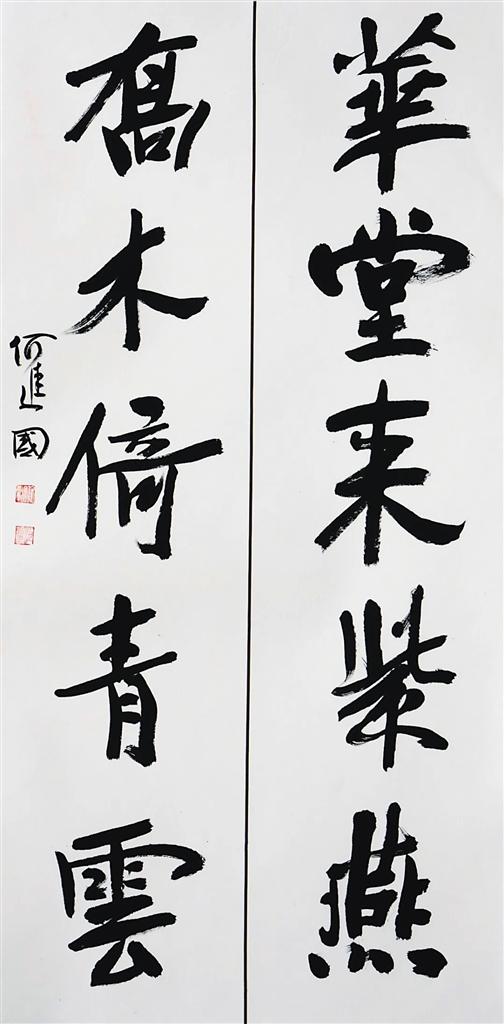 華堂来紫燕
喬木倚青雲
何進國